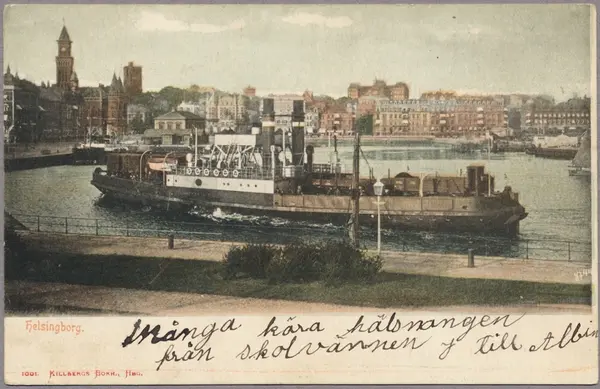 Helsingborg.
Många kära hälsnangen
från skolvännen J till Albin
1001. KILLBERGS BOKH., HBG.